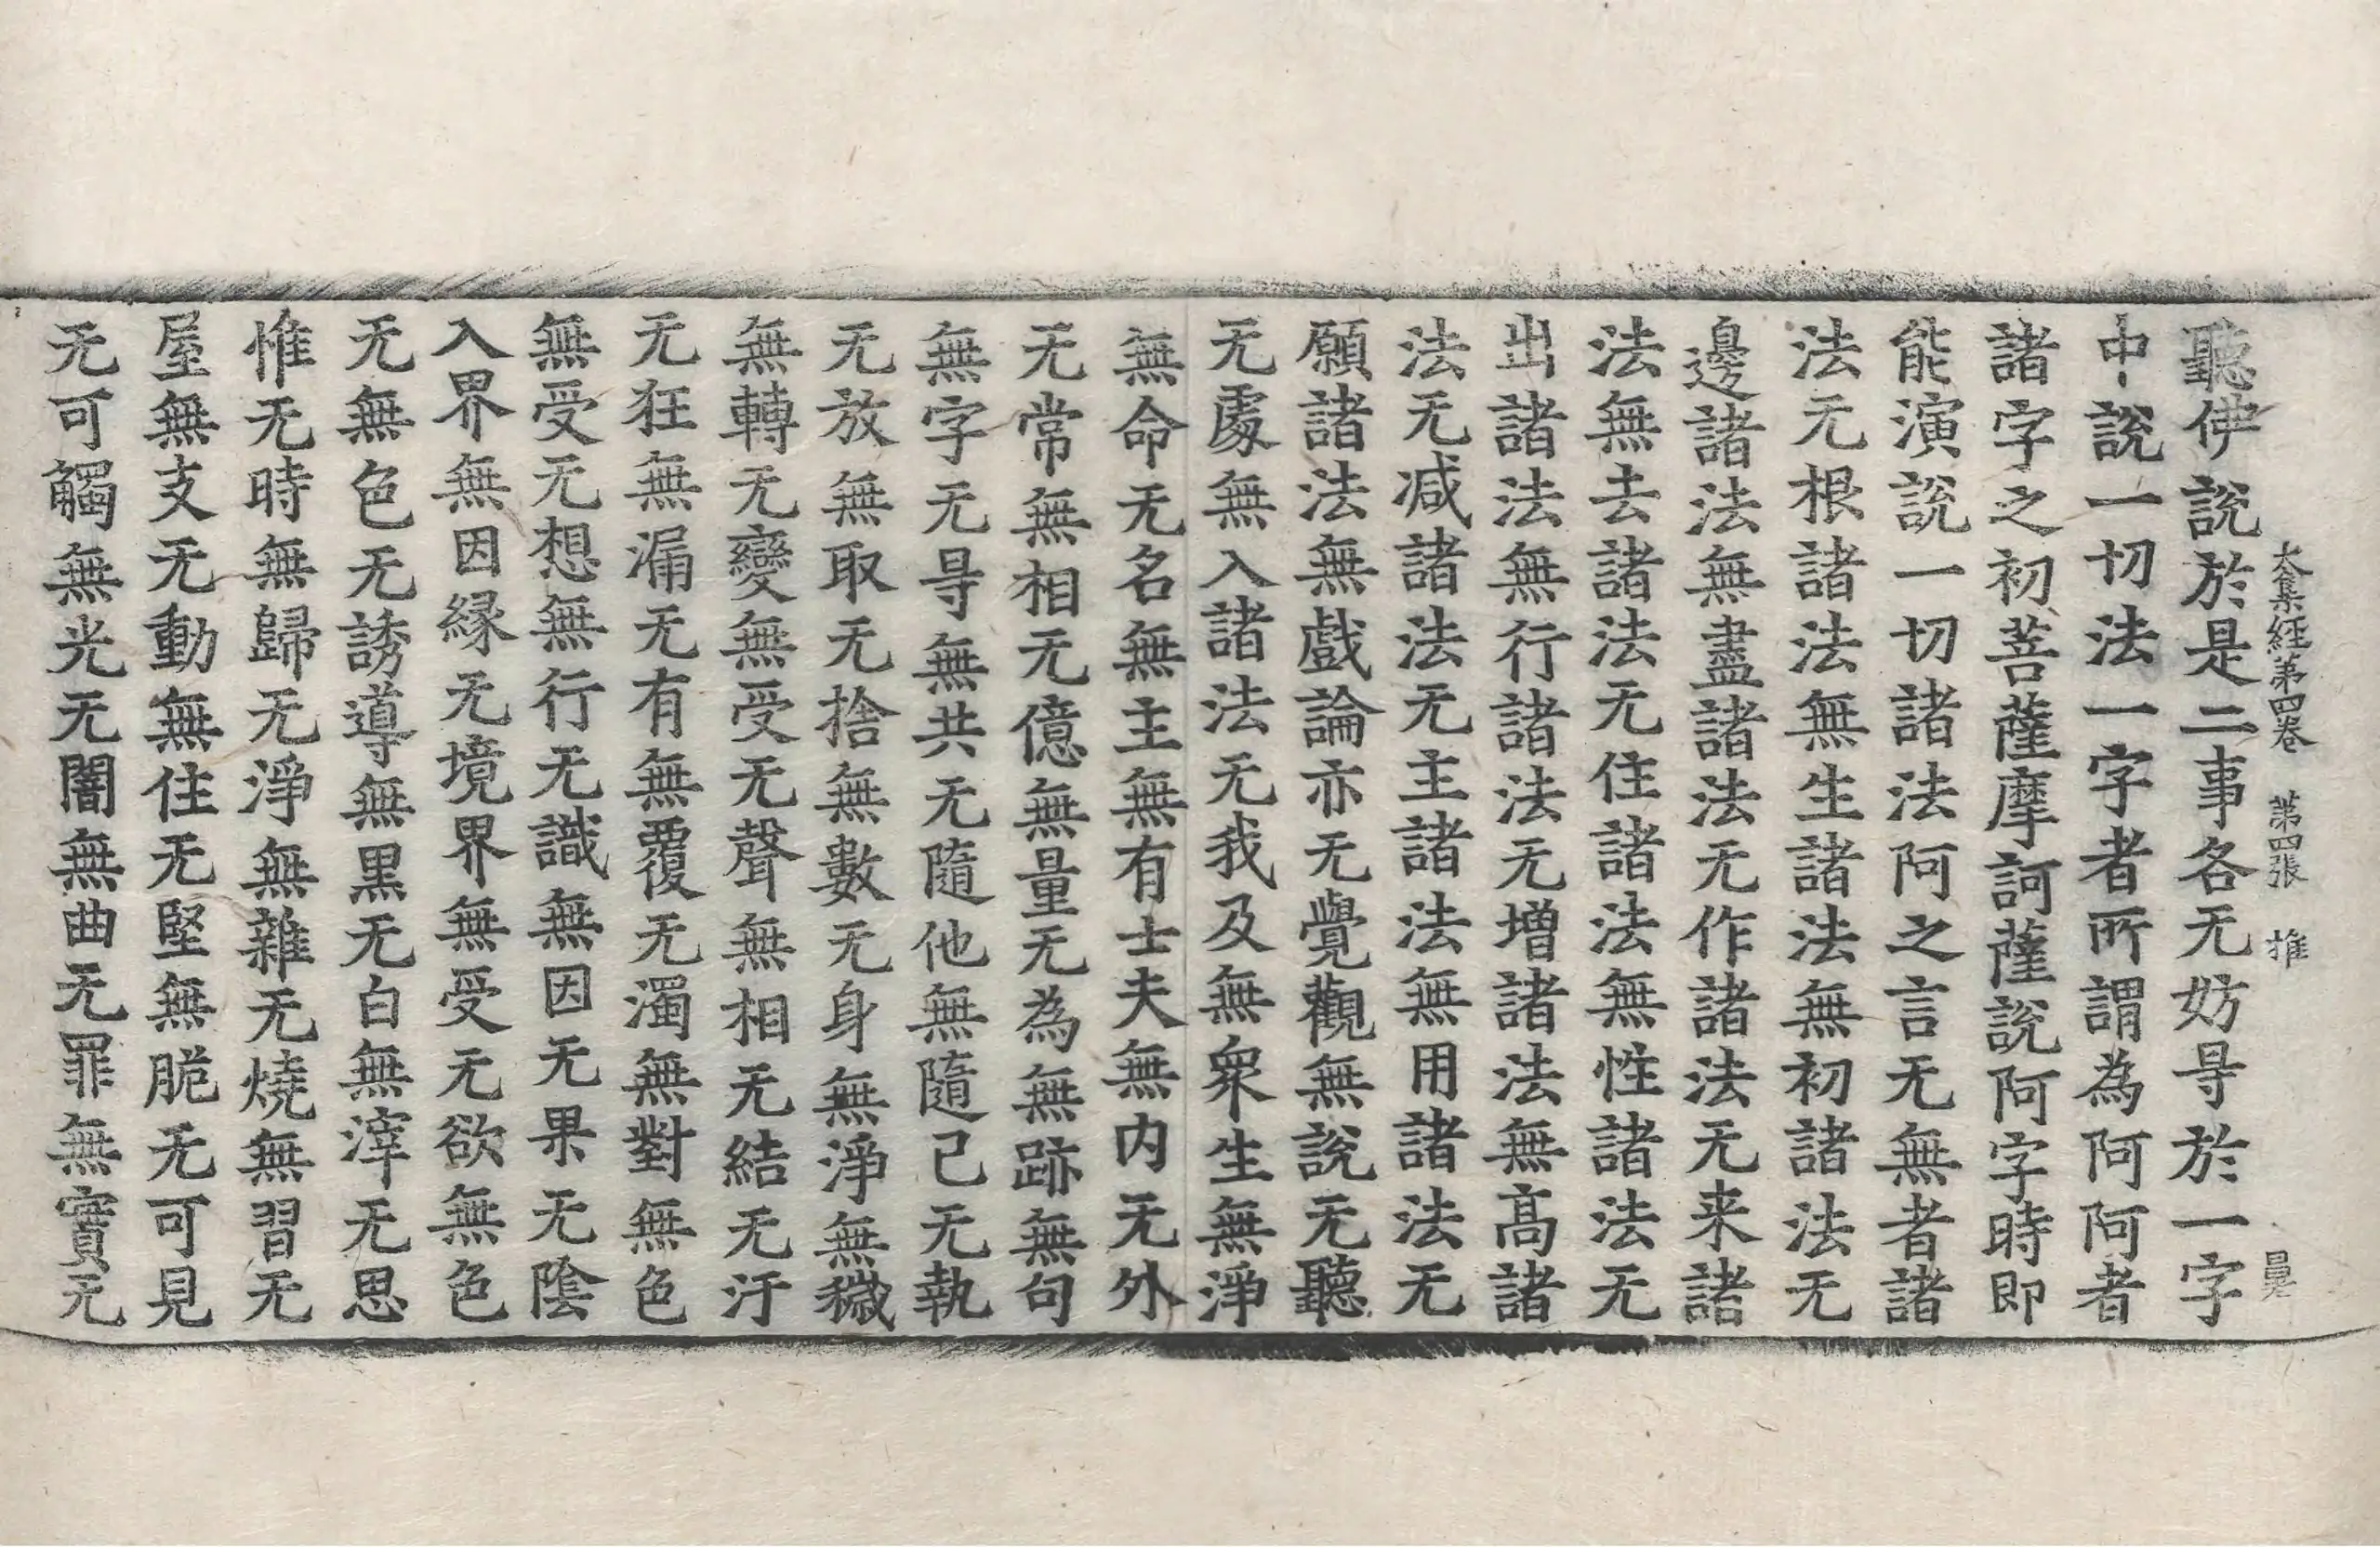 大集經第四卷　第四張　推
聽佛說於是二事各无妨㝵於一字
中說一切法一字者所謂為阿阿者
諸字之初菩薩摩訶薩說阿字時即
能演說一切諸法阿之言无無者諸
法无根諸法無生諸法無初諸法无
邊諸法無盡諸法无作諸法无来諸
法無去諸法无住諸法無性諸法无
出諸法無行諸法无增諸法無高諸
法无减諸法无主諸法無用諸法无
願諸法無戲論亦无覺觀無說无聽
无處無入諸法无我及無衆生無淨
無命无名無主無有士夫無内无外
无常無相无億無量无為無跡無句
無字无㝵無共无隨他無隨己无執
无放無取无捨無數无身無淨無穢
無轉无變無受无聲無相无結无汙
无狂無漏无有無覆无濁無對無色
無受无想無行无識無因无果无陰
入界無因縁无境界無受无欲無色
无無色无誘導無黒无白無滓无思
惟无時無歸无淨無雜无燒無習无
屋無支无動無住无堅無脆无可見
无可觸無光无闇無曲无罪無實无